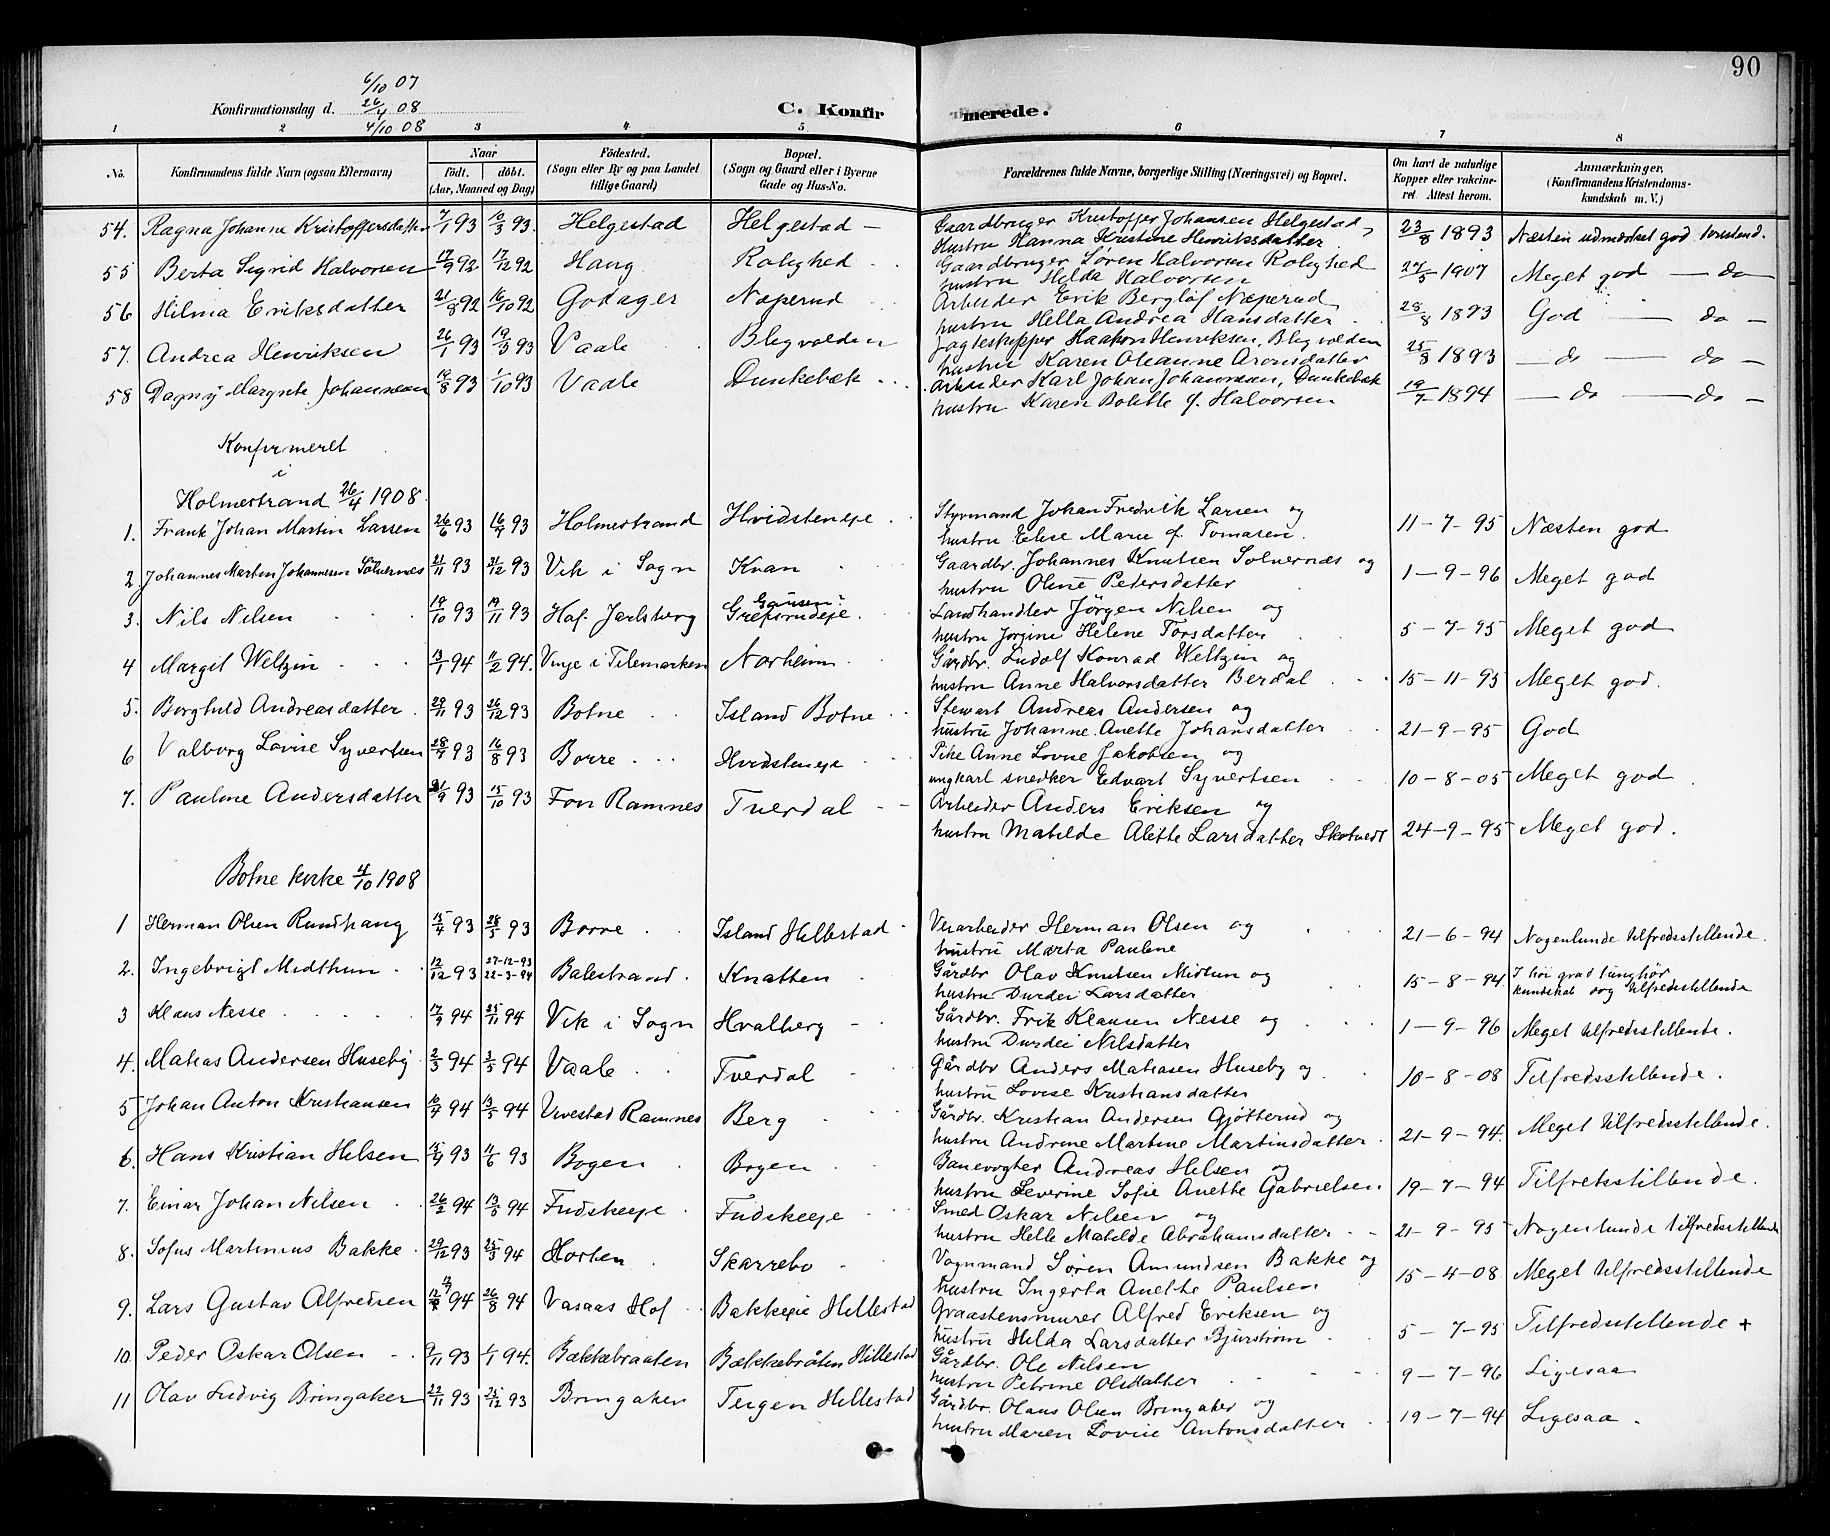 90
6/10 07
Konfirmationsdag d. 26/4 08
4/10 08
C. Konfirmerede.
1 2 3 4 5 6 7 8
No. Konfirmandens fulde Navn (ogsaa Efternavn) Naar født. døbt. (Aar, Maaned og Dag) Fødested. (Sogn eller By og paa Landet tillige Gaard) Bopæl. (Sogn og Gaard eller i Byerne Gade og Hus-No. Forældrenes fulde Navne, borgerlige Stilling (Næringsvei) og Bopæl. Om havt de naturlige Kopper eller vakcineret. Attest herom. Anmærkninger. (Konfirmandens Kristendomskundskab m. V.)
54. Ragna Johanne Kristoffersdatter 7/1 93 10/3 93. Helgestad Helgestad — Gaardbruger Kristoffer Johansen Helgestad, 23/8 1893 Næsten udmærket god
Hustru Hanna Kristine Henriksdatter
55 Berta Sigrid Halvorsen 17/9 92 17/12 92 Haug Rolighed Gaardbruger Søren Halvorsen Rolighed 27/5 1907 Meget god — do —
hustru Hilda Halvorsen
56 Hilma Eriksdatter 21/8 92 16/10 92 Godager Næperud Arbeider Erik Berglöf Næperud 28/8 1893 God — do —
hustru Hella Andrea Hansdatter
57. Andrea Henriksen 26/1 93 19/3 93 Vaale Blegvolden Jagteskipper Haakon Henriksen, Blegvolden 25/8 1893 — do — do —
hustru Karen Oleanne Aronsdatter
58 Dagny Margrete Johannesen 19/8 93 1/10 93 Vaale Dunkebæk Arbeider Karl Johan Johannesen, Dunkebæk 19/7 1894 — do — do —
hustru Karen Bolette f. Halvorsen
Konfirmeret
i
Holmestrand 26/4 1908
1. Frank Johan Martin Larsen 26/6 93 16/7 93 Holmestrand Hvidsteneje Styrmand Johan Fredrik Larsen og 11-7-95 Næsten god
hustru Elise Marie f. Tomasen.
2. Johannes Martin Johannesen Solvernæs 21/11 93 31/12 93 Vik i Sogn Kvan Gaardbr. Johannes Knutsen Solvernæs og 1-9-96 Meget god
hustru Oline Petersdatter
3. Nils Nilsen 19/10 93 19/11 93 Hof. Jarlsberg Gausen Grefsrudeje. Landhandler Jörgen Nilsen og 5-7-95 Meget god
hustru Jorgine Helene Torsdatter
4 Margit Weltzin 13/1 94 11/2 94. Vinje i Telemarken Norheim Gårdbr. Ludolf Konrad Weltzin og 15-11-95 Meget god.
hustru Anne Halvorsdatter Berdal
5. Borghild Andreasdatter 29/11 93 26/12 93 Botne Island Botne Stewart Andreas Andersen og 21-9-95 God
hustru Johanne Anette Johansdatter
6 Valborg Lovise Syvertsen 28/7 93 16/8 93 Borre Hvidsteneje Pike Anne Lovise Jakobsen og 10-8-05 Meget god
ungkarl snedker Edvart Syvertsen
7. Pauline Andersdatter 21/9 93 15/10 93 Fon Ramnes Tverdal Arbeider Anders Eriksen og 24-9-95 Meget god.
hustru Matilde Alette Larsdatter Skotvedt
Botne kirke 4/10 1908
1 Herman Olsen Rundhaug 15/4 93 28/5 93 Borre Island Hillestad Veiarbeider Herman Olsen og 21-6-94 Nogenlunde tilfredsstillende.
hustru Marta Pauline
2. Ingebrigt Midthun 12/12 93 27-12-93 22-3-94 Balestrand. Knatten Gårdbr Olav Knutsen Midtun og 15-8-94. I høi grad tunghør
hustru Durdei Larsdatter kundskab dog tilfredsstillende
3 Klaus Nesse 17/9 94 25/11 94 Vik i Sogn Hvalberg Gårdbr. Frik Klausen Nesse og 1-9-96 Meget tilfredsstillende.
hustru Durdei Nilsdatter
4. Matias Andersen Huseby 2/3 94 3/5 94 Vaale Tverdal Gårdbr Anders Matiasen Huseby og 10-8-08 Tilfredsstillende.
hustru Lovise Kristiansdatter
5 Johan Anton Kristiansen 10/4 94 13/5 94 Vivestad Ramnes Berg Gårdbr. Kristian Andersen Gjøtterud og 21-9-94. Meget tilfredsstillende.
hustru Andrine Martine Martinsdatter
6. Hans Kristian Helsen 15/4 93 11/6 93 Bogen Bogen Banevogter Andreas Helsen og 19-7-94 Tilfredsstillende.
hustru Severine Sofie Anette Gabrielsen
7. Einar Johan Nilsen 26/2 94 13/5 94 Fudskeeje Fudskeeje Smed Oskar Nilsen og 21-9-95 Nogenlunde tilfredsstillende
hustru Helle Matilde Abrahamsdatter
8. Sofus Martinius Bakke 29/12 93 25/3 94 Horten Skarrebo Vognmand Søren Amundsen Bakke og 15-4-08. Meget tilfredsstillende
hustru Ingerta Anette Paulsen
9. Lars Gustav Alfredsen 12/7 94 26/8 94 Vasaas Hof Bakkeeje Hillestad Graastensmurer Alfred Eriksen og 5-7-95 Tilfredsstillende +
hustru Hilda Larsdatter Bjurstrøm
10. Peder Oskar Olsen 9/11 93 1/1 94. Bækkebraaten Bækkebråten Hillestad Gårdbr. Ole Nilsen 9-7-96 Ligesaa
hustru Petrine Olsdatter
11 Olav Ludvig Bringaker 22/11 93 25/12 93 Bringaker Teigen Hillestad Gårdbr. Olaus Olsen Bringaker og 19-7-94 Ligesaa.
hustru Maren Lovise Antonsdatter